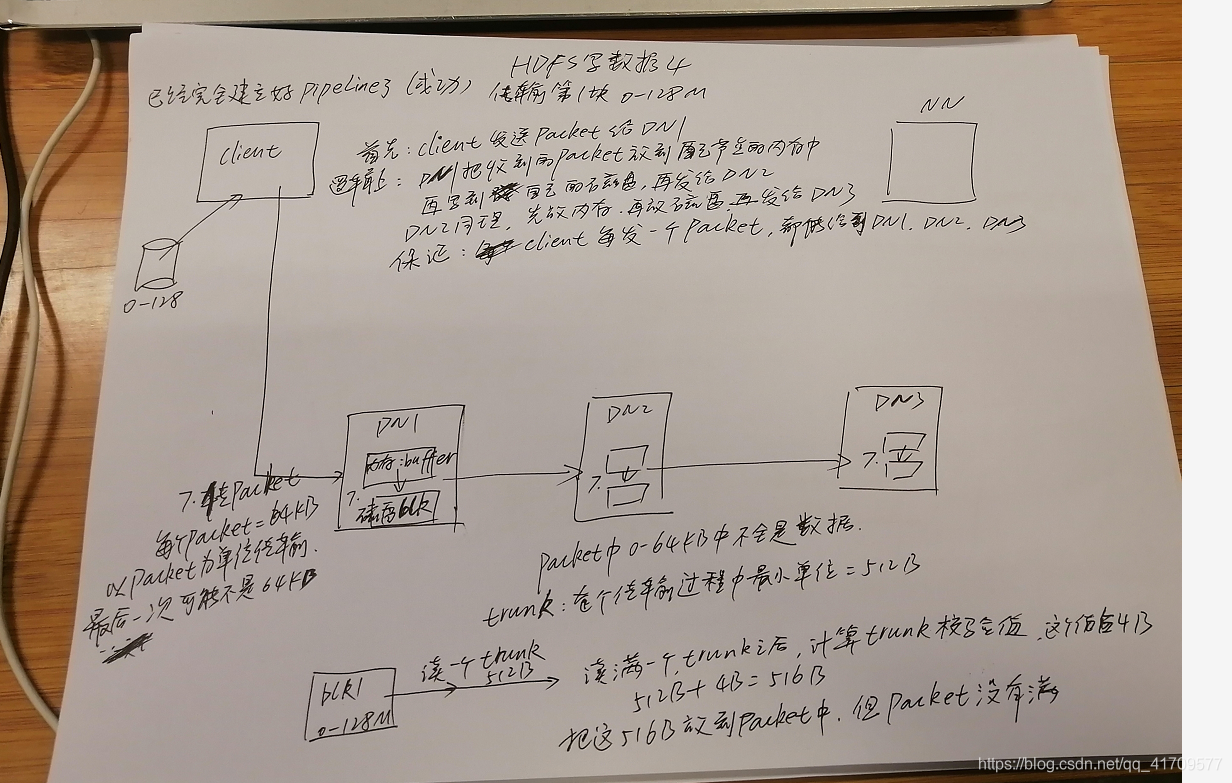 HDFS写数据4
已经完全建立好pipeline了(成功) 传输第1块 0-128M
NN
client
首先:client发送Packet给DN1
逻辑上:DN1把收到的Packet放到自己节点的内存中
再写到自己的磁盘,再发给DN2
DN2同理,先放内存.再放磁盘.再发给DN3
保证:client每发一个Packet,都能给到DN1.DN2.DN3
0-128
DN1
内存:buffer
7.
磁盘blk
DN2
7.
DN3
7.
7.传Packet
每个Packet=64KB
以Packet为单位传输.
最后一次可能不是64KB
Packet中0-64KB中不全是数据.
trunk:在个传输过程中最小单位=512B
blk1
0-128M
读一个trunk
512B
读满一个trunk之后,计算trunk校验值.这个值占4B
512B+4B=516B
把这516B放到Packet中.但Packet没有满
https://blog.csdn.net/qq_41709577